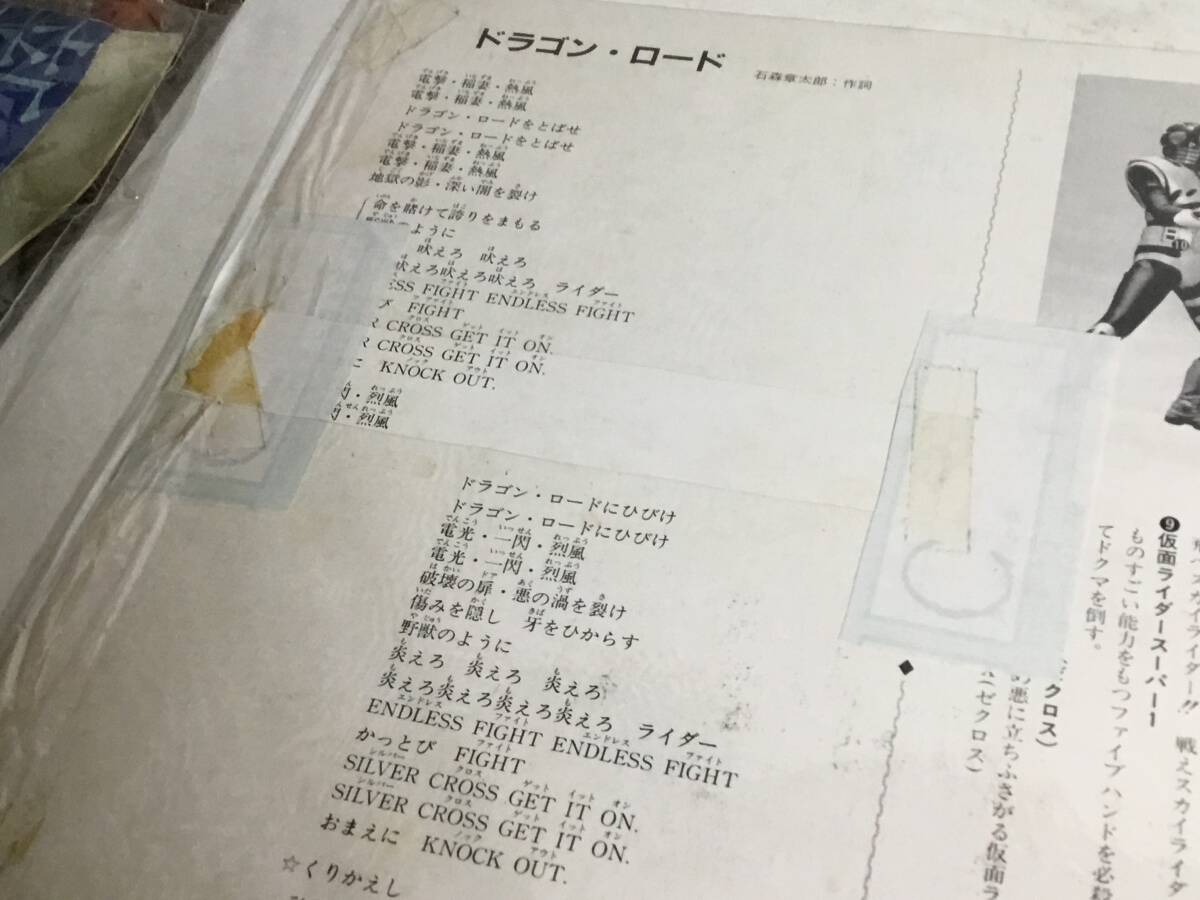 ドラゴン・ロード
石森章太郎：作詞
電撃・稲妻・熱風
電撃・稲妻・熱風
ドラゴン・ロードをとばせ
ドラゴン・ロードをとばせ
電撃・稲妻・熱風
電撃・稲妻・熱風
地獄の影・深い闇を裂け
命を賭けて誇りをまもる
ように
吠えろ 吠えろ
吠えろ吠えろ吠えろ ライダー
ESS FIGHT ENDLESS FIGHT
FIGHT
R CROSS GET IT ON.
R CROSS GET IT ON.
に KNOCK OUT.
閃・烈風
閃・烈風
ドラゴン・ロードにひびけ
ドラゴン・ロードにひびけ
電光・一閃・烈風
電光・一閃・烈風
破壊の扉・悪の渦を裂け
傷みを隠し 牙をひからす
野獣のように
炎えろ 炎えろ 炎えろ
炎えろ炎えろ炎えろ炎えろ ライダー
ENDLESS FIGHT ENDLESS FIGHT
かっとび FIGHT
SILVER CROSS GET IT ON.
SILVER CROSS GET IT ON.
おまえに KNOCK OUT.
☆くりかえし
カイライダー!! 戦えスカイライダ
❾仮面ライダースーパー1
ものすごい能力をもつファイブハンドを必殺
てドクマを倒す。
クロス)
の悪に立ちふさがる仮面ラ
ゼクロス)